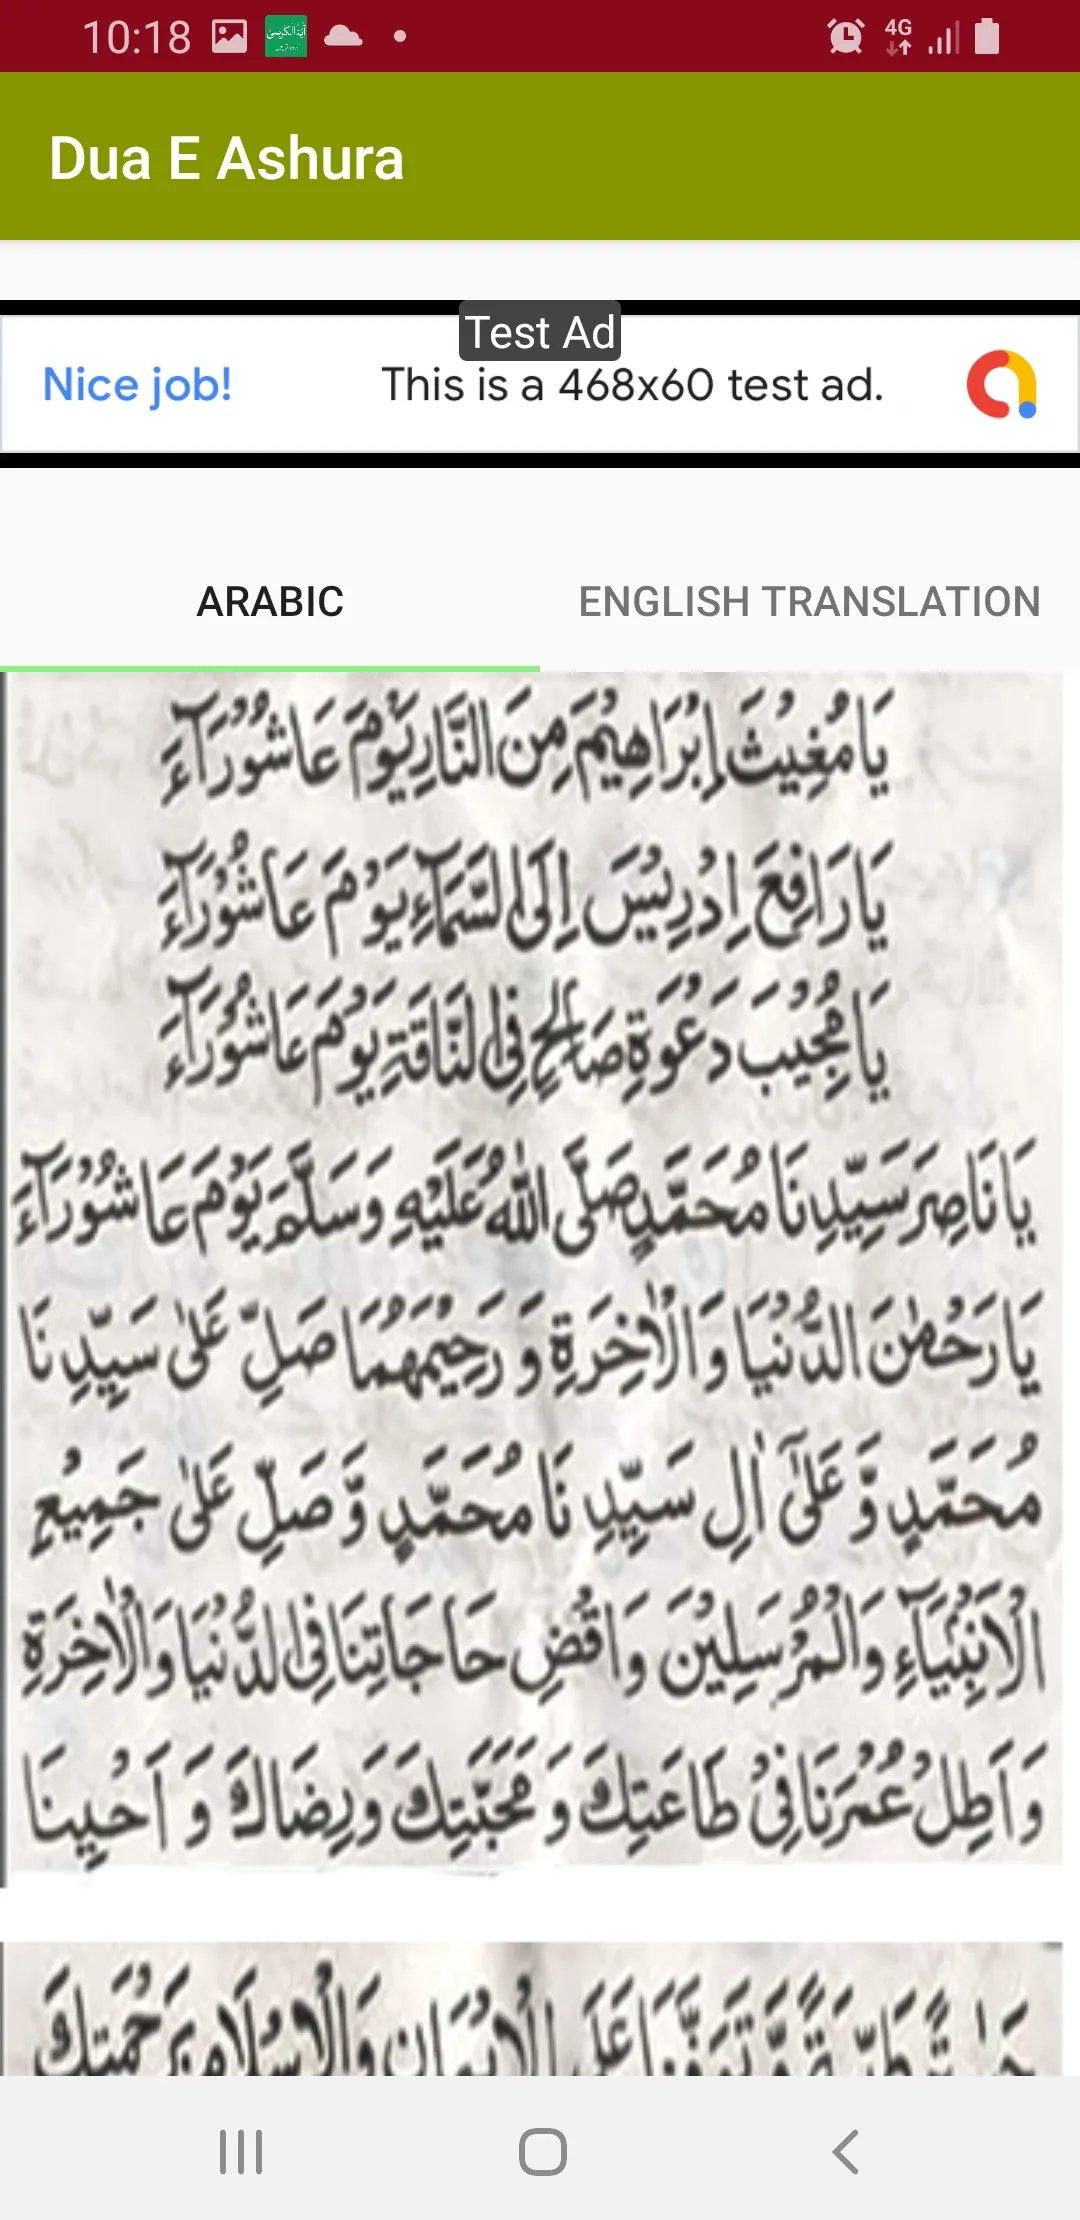 10:18
4G
Dua E Ashura
Test Ad
Nice job!
This is a 468x60 test ad.
ARABIC
ENGLISH TRANSLATION
يَا مُغِيْثَ اِبْرَاهِيْمَ مِنَ النَّارِ يَوْمَ عَاشُوْرَآءَ
يَا رَافِعَ اِدْرِيْسَ اِلَى السَّمَآءِ يَوْمَ عَاشُوْرَآءَ
يَا مُجِيْبَ دَعْوَةِ صَالِحٍ فِى النَّاقَةِ يَوْمَ عَاشُوْرَآءَ
يَا نَاصِرَ سَيِّدِنَا مُحَمَّدٍ صَلَّى اللهُ عَلَيْهِ وَسَلَّمَ يَوْمَ عَاشُوْرَآءَ
يَا رَحْمٰنَ الدُّنْيَا وَالْاٰخِرَةِ وَ رَحِيْمَهُمَا صَلِّ عَلٰى سَيِّدِنَا
مُحَمَّدٍ وَّ عَلٰٓى اٰلِ سَيِّدِنَا مُحَمَّدٍ وَّ صَلِّ عَلٰى جَمِيْعِ
الْاَنْبِيَآءِ وَالْمُرْسَلِيْنَ وَاقْضِ حَاجَاتِنَا فِى الدُّنْيَا وَالْاٰخِرَةِ
وَ اَطِلْ عُمْرَنَا فِىْ طَاعَتِكَ وَ مَحَبَّتِكَ وَرِضَاكَ وَ اَحْيِنَا